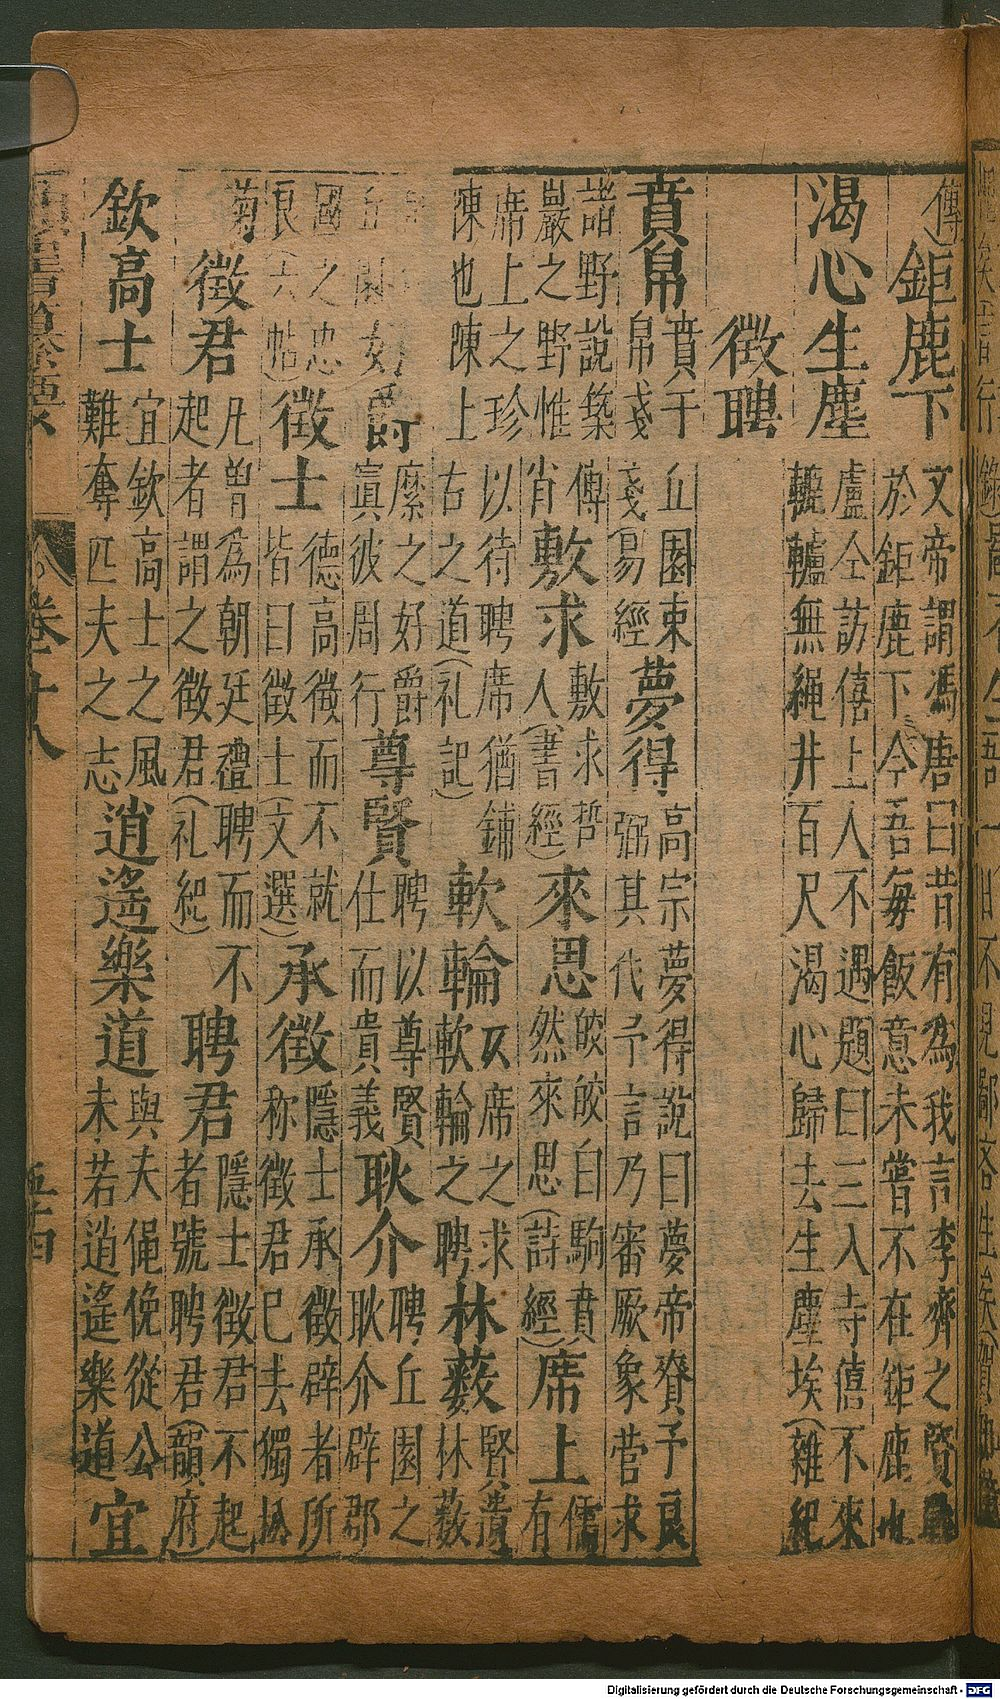 傳 鉅鹿下 文帝謂馮唐曰昔有為我言李齊之賢
於鉅鹿下今吾每飯意未嘗不在鉅鹿也
渴心生塵 盧仝訪僖上人不遇題曰三入寺僖不來
轆轤無繩井百尺渴心歸去生塵埃(雜紀
徵聘
賁帛 賁于丘園束
帛戔戔(易經 夢得 高宗夢得說曰夢帝賚予良
弼其代予言乃審厥象營求
諸野說築傅
巖之野惟肖 敷求 敷求哲
人(書經) 來思 皎皎白駒賁
然來思(詩經) 席上 儒
有
席上之珍以待聘席猶鋪
陳也陳上古之道(礼記) 軟輪 及席之求
軟輪之聘 林藪 賢遺
林藪
丘園 好爵 縻之好爵
寘彼周行 尊賢 聘以尊賢
仕而貴義 耿介 聘丘園之
耿介辟郡
國之忠
良(六帖) 徵士 德高徵而不就
皆曰徵士(文選) 承徵 隱士承徵辟者所
称徵君已去獨松
菊 徵君 凡曾為朝廷禮聘而不
起者謂之徵君(礼紀) 聘君 隱士徵君不起
者號聘君(韻府)
欽高士 宜欽高士之風
難奪匹夫之志 逍遙樂道 與夫俛俛從公
未若逍遙樂道 宜
卷十八
Digitalisierung gefördert durch die Deutsche Forschungsgemeinschaft - DFG